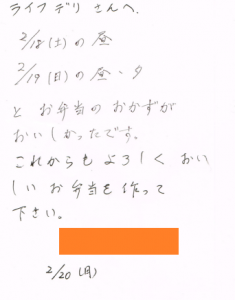 ライフデリ さんへ、
2/18(土)の昼
2/19(日)の昼・夕
と お弁当の おかずが
おいしかったです。
これからも よろしく おい
しい お弁当を 作って
下さい。
2/20(月)